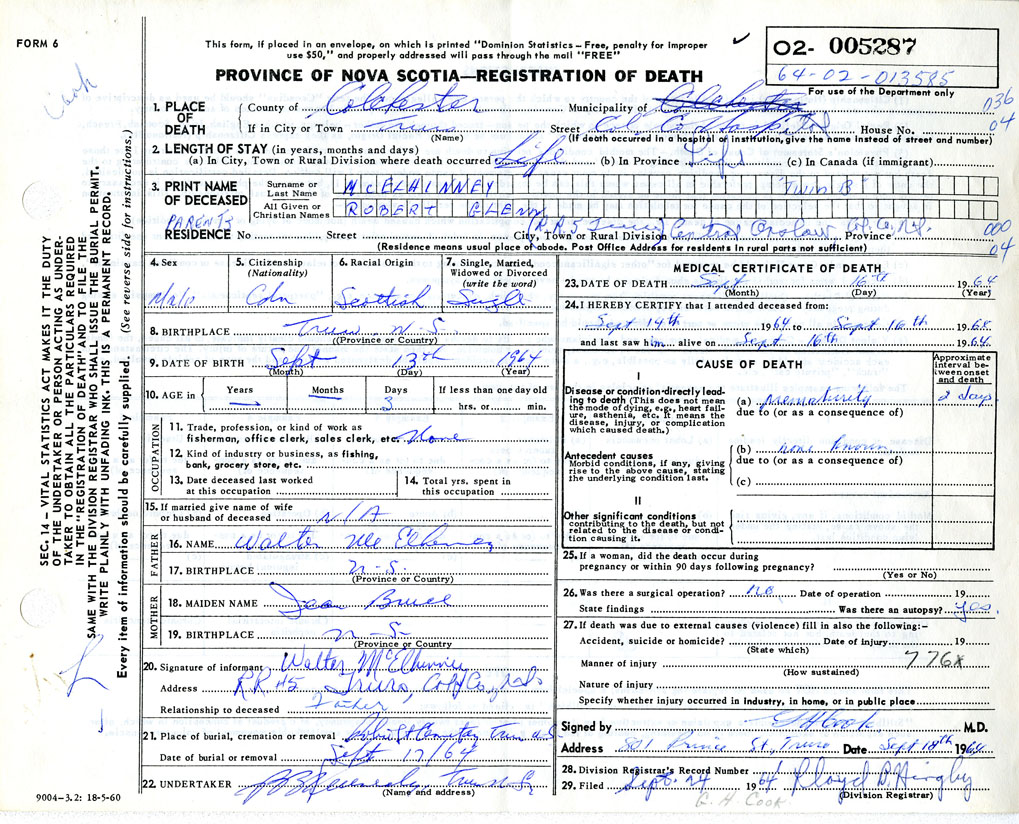 FORM 6
Cook
This form, if placed in an envelope, on which is printed "Dominion Statistics – Free, penalty for improper
use $50," and properly addressed will pass through the mail "FREE"
✓
PROVINCE OF NOVA SCOTIA—REGISTRATION OF DEATH
02- 005287
64-02-013585
For use of the Department only
036
04
1. PLACE OF DEATH
County of Colchester Municipality of Colchester
If in City or Town Truro Street Col. Co. Hospital House No.
(Name) (If death occurred in a hospital or institution, give the name instead of street and number)
2. LENGTH OF STAY (in years, months and days)
(a) In City, Town or Rural Division where death occurred Life (b) In Province Life (c) In Canada (if immigrant)
3. PRINT NAME OF DECEASED
Surname or Last Name McELHINNEY "TWIN B"
All Given or Christian Names ROBERT GLENN
PARENTS
RESIDENCE No Street City, Town or Rural Division (RR5 Truro) Central Onslow Province Col. Co. N.S.
(Residence means usual place of abode. Post Office Address for residents in rural parts not sufficient)
000
04
4. Sex Male
5. Citizenship (Nationality) Cdn
6. Racial Origin Scottish
7. Single, Married, Widowed or Divorced (write the word) Single
8. BIRTHPLACE Truro N.S.
((Province or Country)
9. DATE OF BIRTH Sept 13th 1964
(Month) (Day) (Year)
10. AGE in Years — Months — Days 3 If less than one day old hrs. or min.
OCCUPATION
11. Trade, profession, or kind of work as
fisherman, office clerk, sales clerk, etc. None
12. Kind of industry or business, as fishing,
bank, grocery store, etc.
13. Date deceased last worked
at this occupation
14. Total yrs. spent in
this occupation
15. If married give name of wife
or husband of deceased N/A
FATHER
16. NAME Walter McElhinney
17. BIRTHPLACE N-S.
(Province or Country)
MOTHER
18. MAIDEN NAME Jean Bruce
19. BIRTHPLACE N-S.
(Province or Country)
20. Signature of informant Walter McElhinney
Address RR #5 Truro, Col. Co.
Relationship to deceased Father
21. Place of burial, cremation or removal Cemetery Truro N.S
Date of burial or removal Sept 17/64
22. UNDERTAKER
(Name and address)
9004-3.2: 18-5-60
MEDICAL CERTIFICATE OF DEATH
23. DATE OF DEATH Sept 16th 1964
(Month) (Day) (Year)
24. I HEREBY CERTIFY that I attended deceased from:
Sept 14th 1964 to Sept 16th 1964
and last saw him alive on Sept 16th 1964
CAUSE OF DEATH
Approximate interval between onset and death
I
Disease or condition directly leading to death (This does not mean the mode of dying, e.g., heart failure, asthenia, etc. It means the disease, injury, or complication which caused death.)
(a) prematurity 2 days
due to (or as a consequence of)
Antecedent causes
Morbid conditions, if any, giving rise to the above cause, stating the underlying condition last.
(b) none known
due to (or as a consequence of)
(c)
II
Other significant conditions
contributing to the death, but not related to the disease or condition causing it.
25. If a woman, did the death occur during
pregnancy or within 90 days following pregnancy?
(Yes or No)
26. Was there a surgical operation? no Date of operation 19
State findings Was there an autopsy? yes.
27. If death was due to external causes (violence) fill in also the following:–
Accident, suicide or homicide? Date of injury 19
(State which)
Manner of injury 776X
(How sustained)
Nature of injury
Specify whether injury occurred in industry, in home, or in public place
Signed by G H Cook M.D.
Address 801 Prince St, Truro Date Sept 18th 1964
28. Division Registrar's Record Number
29. Filed Sept. 24 1964 Lloyd
(Division Registrar)
G. H. COOK
SEC. 14 – VITAL STATISTICS ACT MAKES IT THE DUTY
OF THE UNDERTAKER OR PERSON ACTING AS UNDER-
TAKER TO OBTAIN ALL THE PARTICULARS REQUIRED
IN THE "REGISTRATION OF DEATH" AND TO FILE THE
SAME WITH THE DIVISION REGISTRAR WHO SHALL ISSUE THE BURIAL PERMIT.
WRITE PLAINLY WITH UNFADING INK. THIS IS A PERMANENT RECORD.
Every item of information should be carefully supplied. (See reverse side for instructions.)